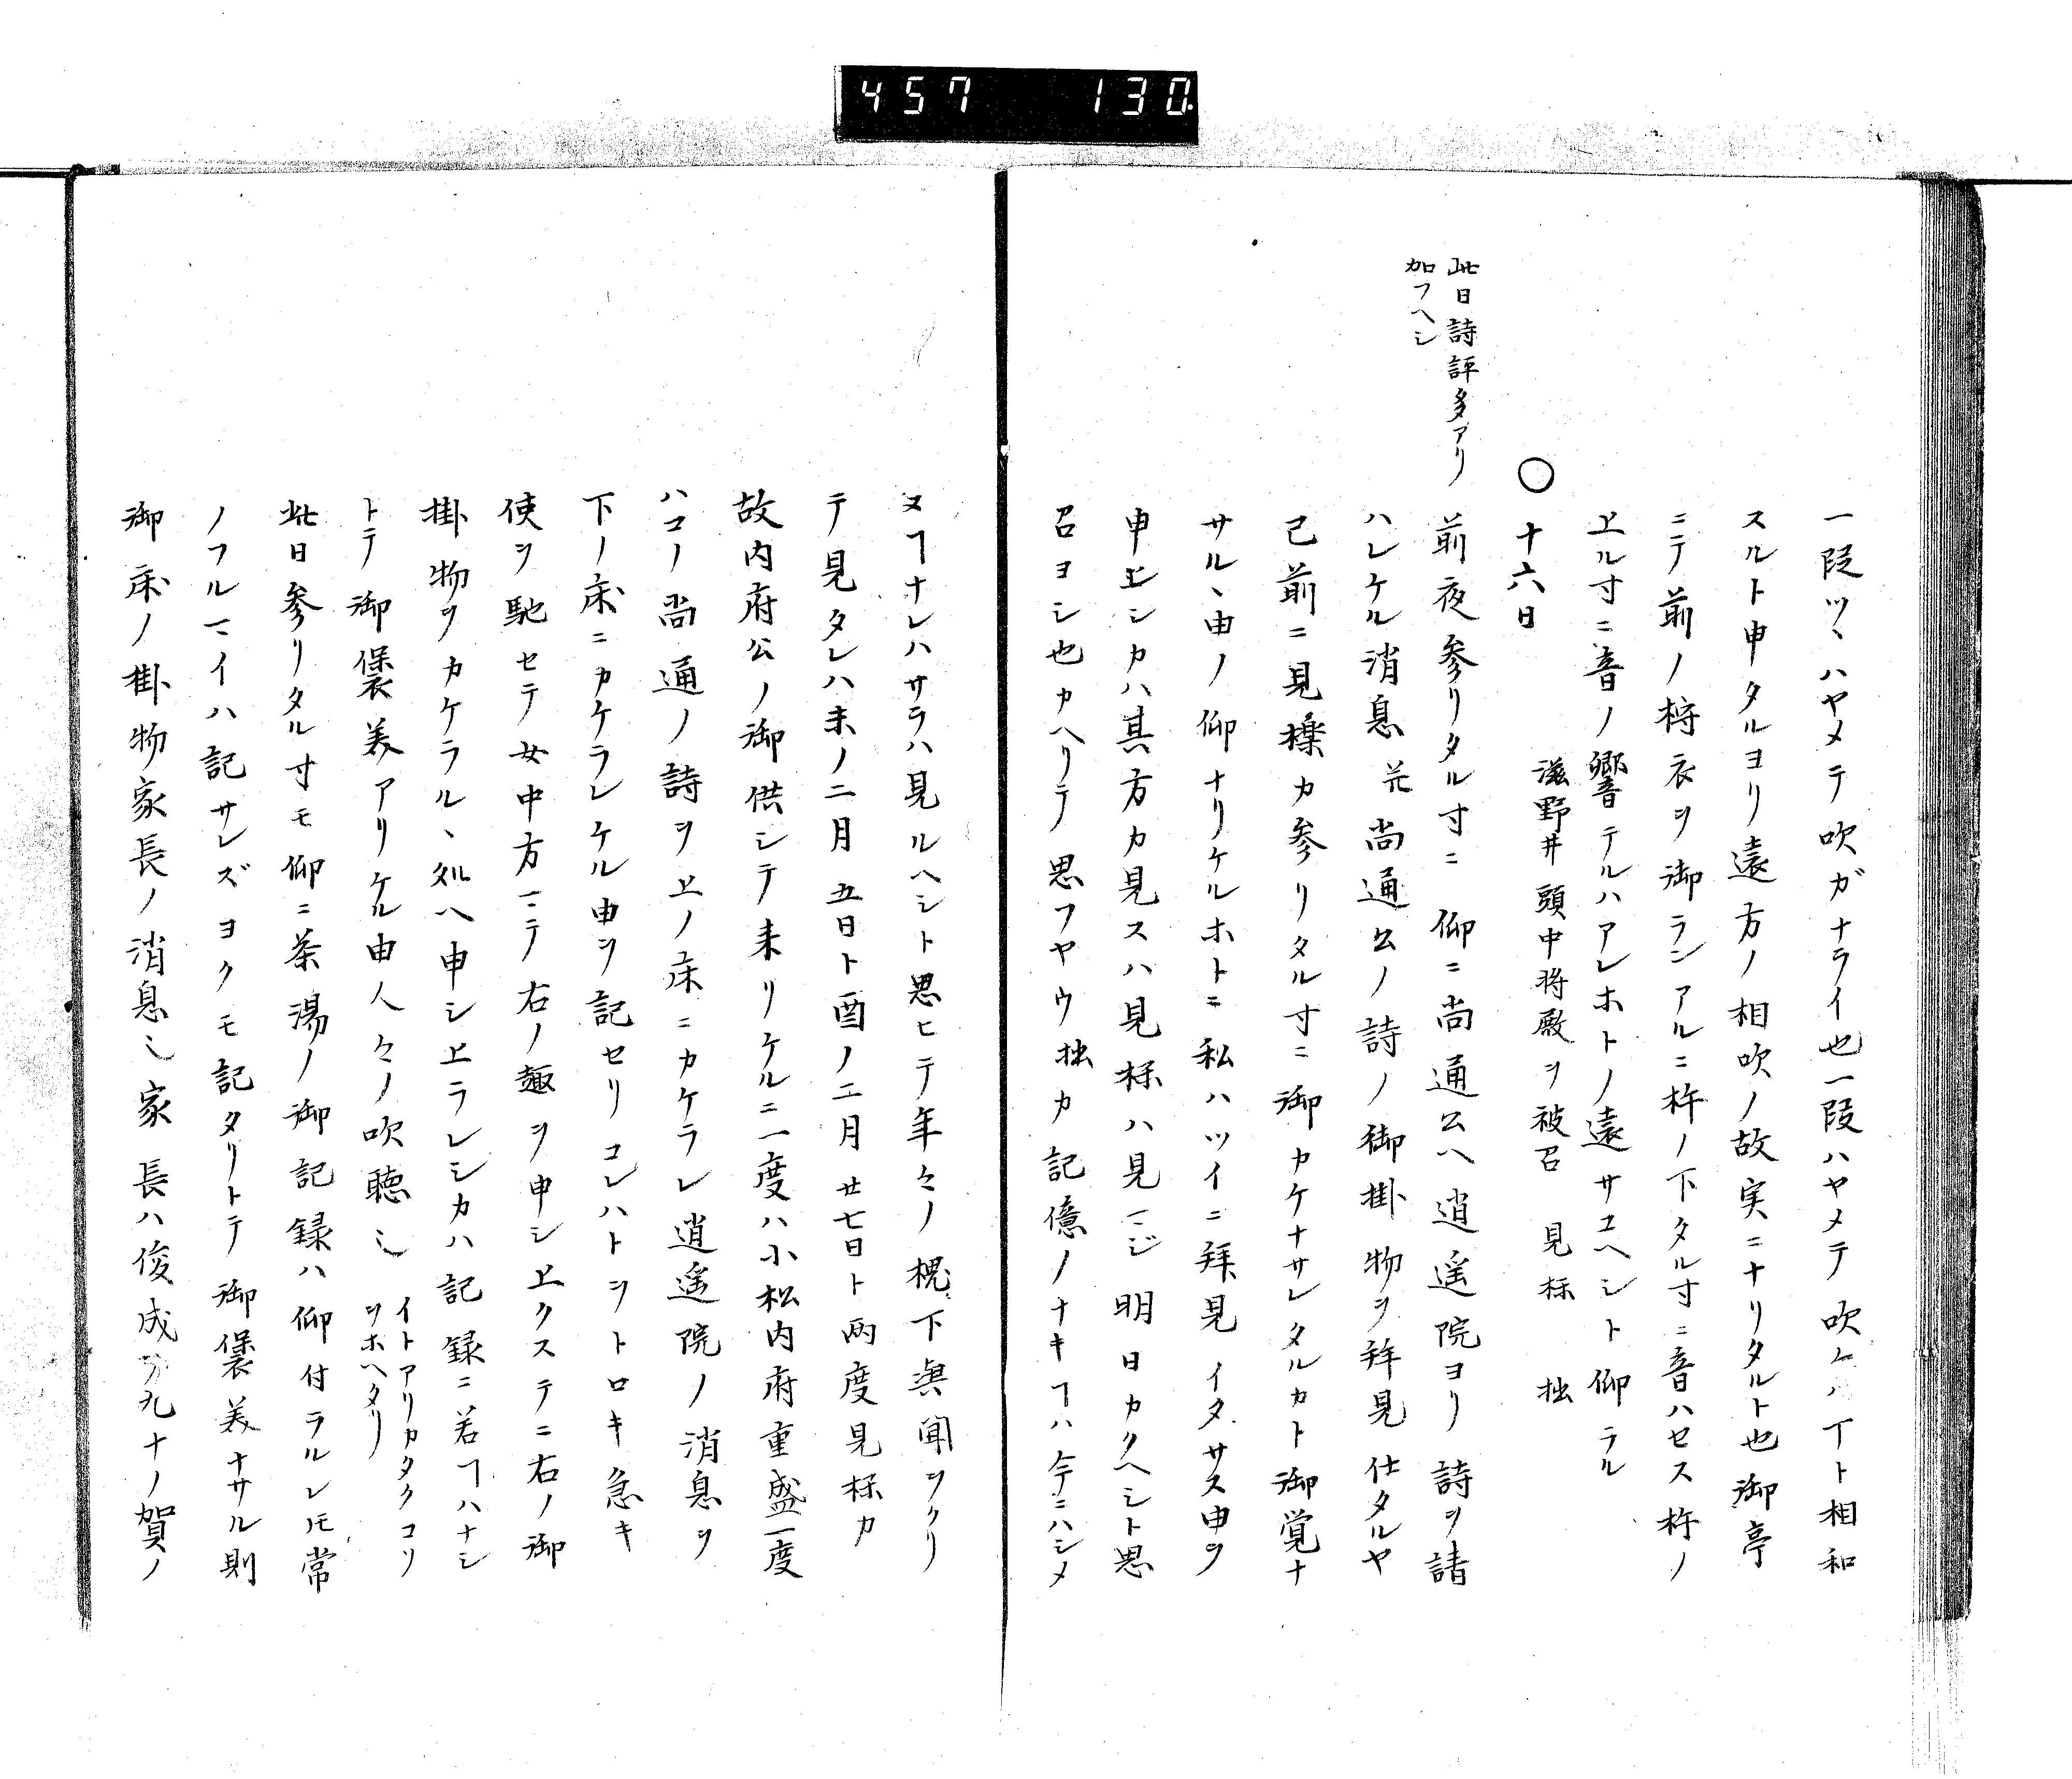 457 130
一段ツヽハヤメテ吹ガナライ也一段ハヤメテ吹ケハ丁ト相和
スルト申タルヨリ遠方ノ相吹ノ故実ニナリタルト也御亭
ニテ前ノ檮衣ヲ御ランアルニ杵ノ下タル寸ニ音ハセス杵ノ
上ル寸ニ音ノ響テルハアレホトノ遠サユヘシト仰ラル
○十六日
滋野井頭中将殿ヲ被召 見柡 拙
此日詩評多アリ
加フヘシ
前夜参リタル寸ニ 仰ニ尚通公ヘ逍遥院ヨリ詩ヲ請
ハレケル消息并尚通公ノ詩ノ御掛物ヲ拝見仕タルヤ
已前ニ見檪カ参リタル寸ニ御カケナサレタルカト御覚ナ
サルヽ由ノ仰ナリケルホトニ私ハツイニ拝見イタサス申ヲ
申上シカハ其方カ見スハ見柡ハ見マジ明日カクヘシト思
召ヨシ也カヘリテ思フヤウ拙カ記憶ノナキヿハ今ニハシメ
ヌヿナレハサラハ見ルヘシト思ヒテ年々ノ槐下與聞ヲクリ
テ見タレハ未ノ二月五日ト酉ノ二月廿七日ト両度見柡カ
故内府公ノ御供シテ来リケルニ一度ハ小松内府重盛一度
ハコノ尚通ノ詩ヲ上ノ床ニカケラレ逍遥院ノ消息ヲ
下ノ床ニカケラレケル申ヲ記セリコレハトヲトロキ急キ
使ヲ馳セテ女中方マテ右ノ趣ヲ申シ上クステニ右ノ御
掛物ヲカケラルヽ処ヘ申シ上ラレシカハ記録ニ若ヿハナシ
トテ御褒美アリケル由人々ノ吹聴シ イトアリカタクコソ
ヲホヘタリ
此日参リタル寸モ仰ニ茶湯ノ御記録ハ仰付ラルレㇳモ常
ノフルマイハ記サレズヨクモ記タリトテ御褒美ナサル則
御床ノ掛物家長ノ消息シ家長ハ俊成ノ九十ノ賀ノ